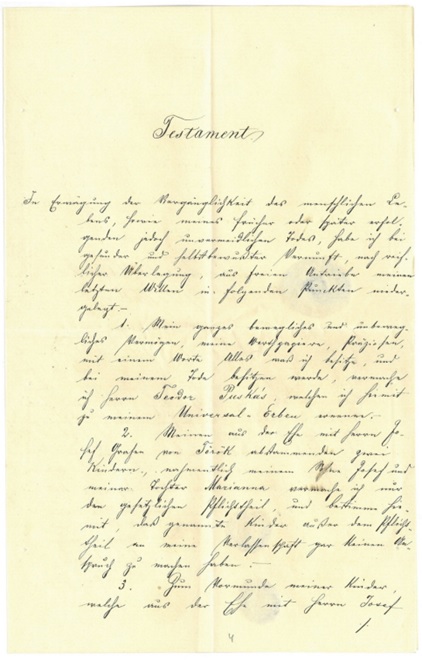 Testament
In Erwägung der Vergänglichkeit des menschlichen Le-
bens, sowie meines früher oder später erfol-
genden jedoch unvermeidlichen Todes, habe ich bei
gesunder und selbstbewußter Vernunft, nach reif-
licher Überlegung, aus freiem Antriebe meinen
letzten Willen in folgenden Punkten nieder-
gelegt.–
1. Mein ganzes bewegliches und unbeweg-
liches Vermögen, meine Werthpapiere, Präziosen,
mit einem Worte Alles was ich besitze, und
bei meinem Tode besitzen werde, vermache
ich Herrn Teodor Puskás, welchen ich hiermit
zu meinem Universal-Erben ernenne.–
2. Meinen aus der Ehe mit Herrn Jo-
sef Grafen von Török abstammenden zwei
Kindern, namentlich meinem Sohne Josef und
meiner Tochter Marianna vermache ich nur
den gesetzlichen Pflichttheil, und bestimme hie-
mit, daß genannte Kinder außer dem Pflicht-
theil an meine Verlassenschaft gar keinen An-
spruch zu machen haben.–
3. Zum Vormunde meiner Kinder,
welche aus der Ehe mit Herrn Josef